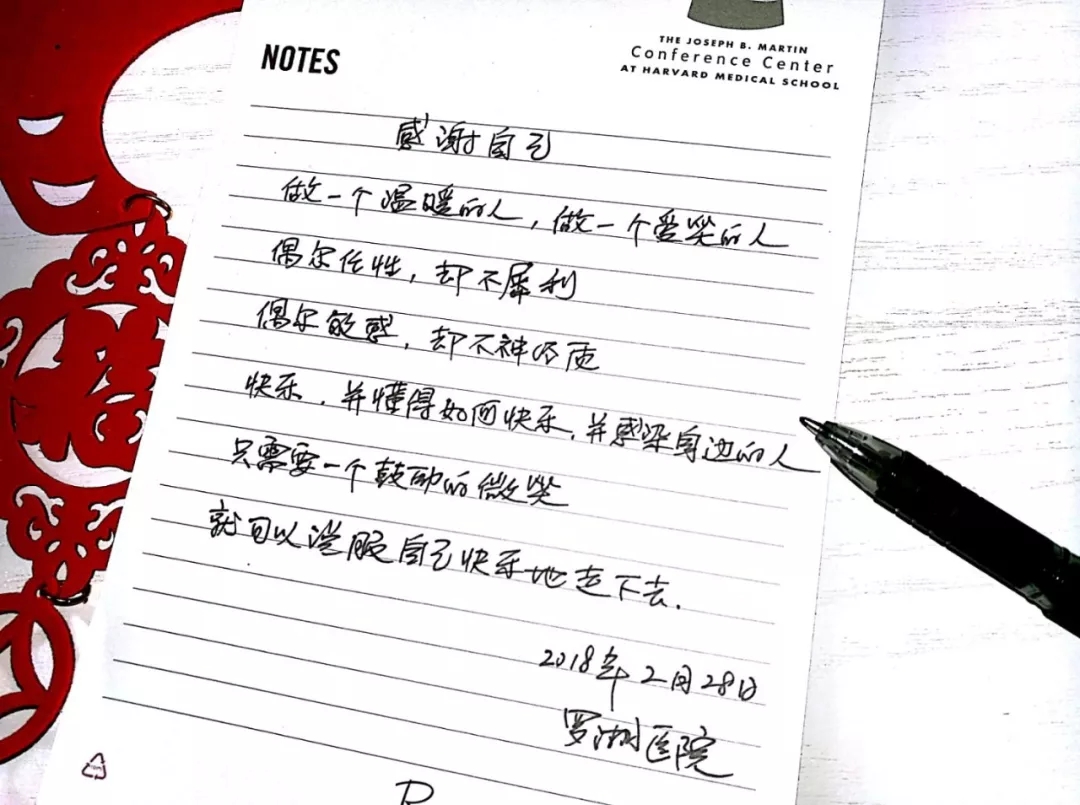 NOTES
THE JOSEPH B. MARTIN
Conference Center
AT HARVARD MEDICAL SCHOOL
感谢自己
做一个温暖的人，做一个爱笑的人
偶尔任性，却不犀利
偶尔敏感，却不神经质
快乐，并懂得如何快乐，并感染身边的人
只需要一个鼓励的微笑
就可以说服自己快乐地走下去.
2018年2月28日
罗湖医院